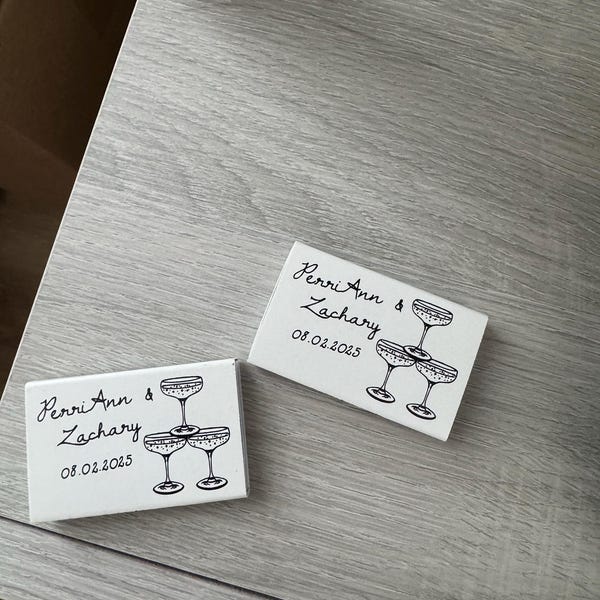 PerriAnn &
Zachary
08.02.2025
PerriAnn &
Zachary
08.02.2025